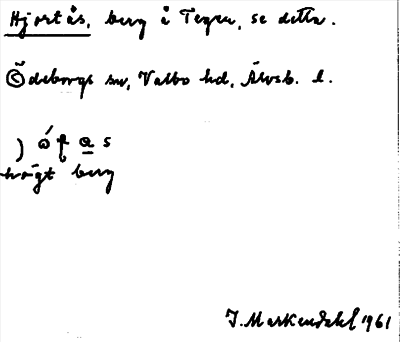 Hjortås, berg å Tegen, se detta.
Ödeborgs sn, Valbo hd, Älvsb. l.
högt berg
J. Markendahl 1961